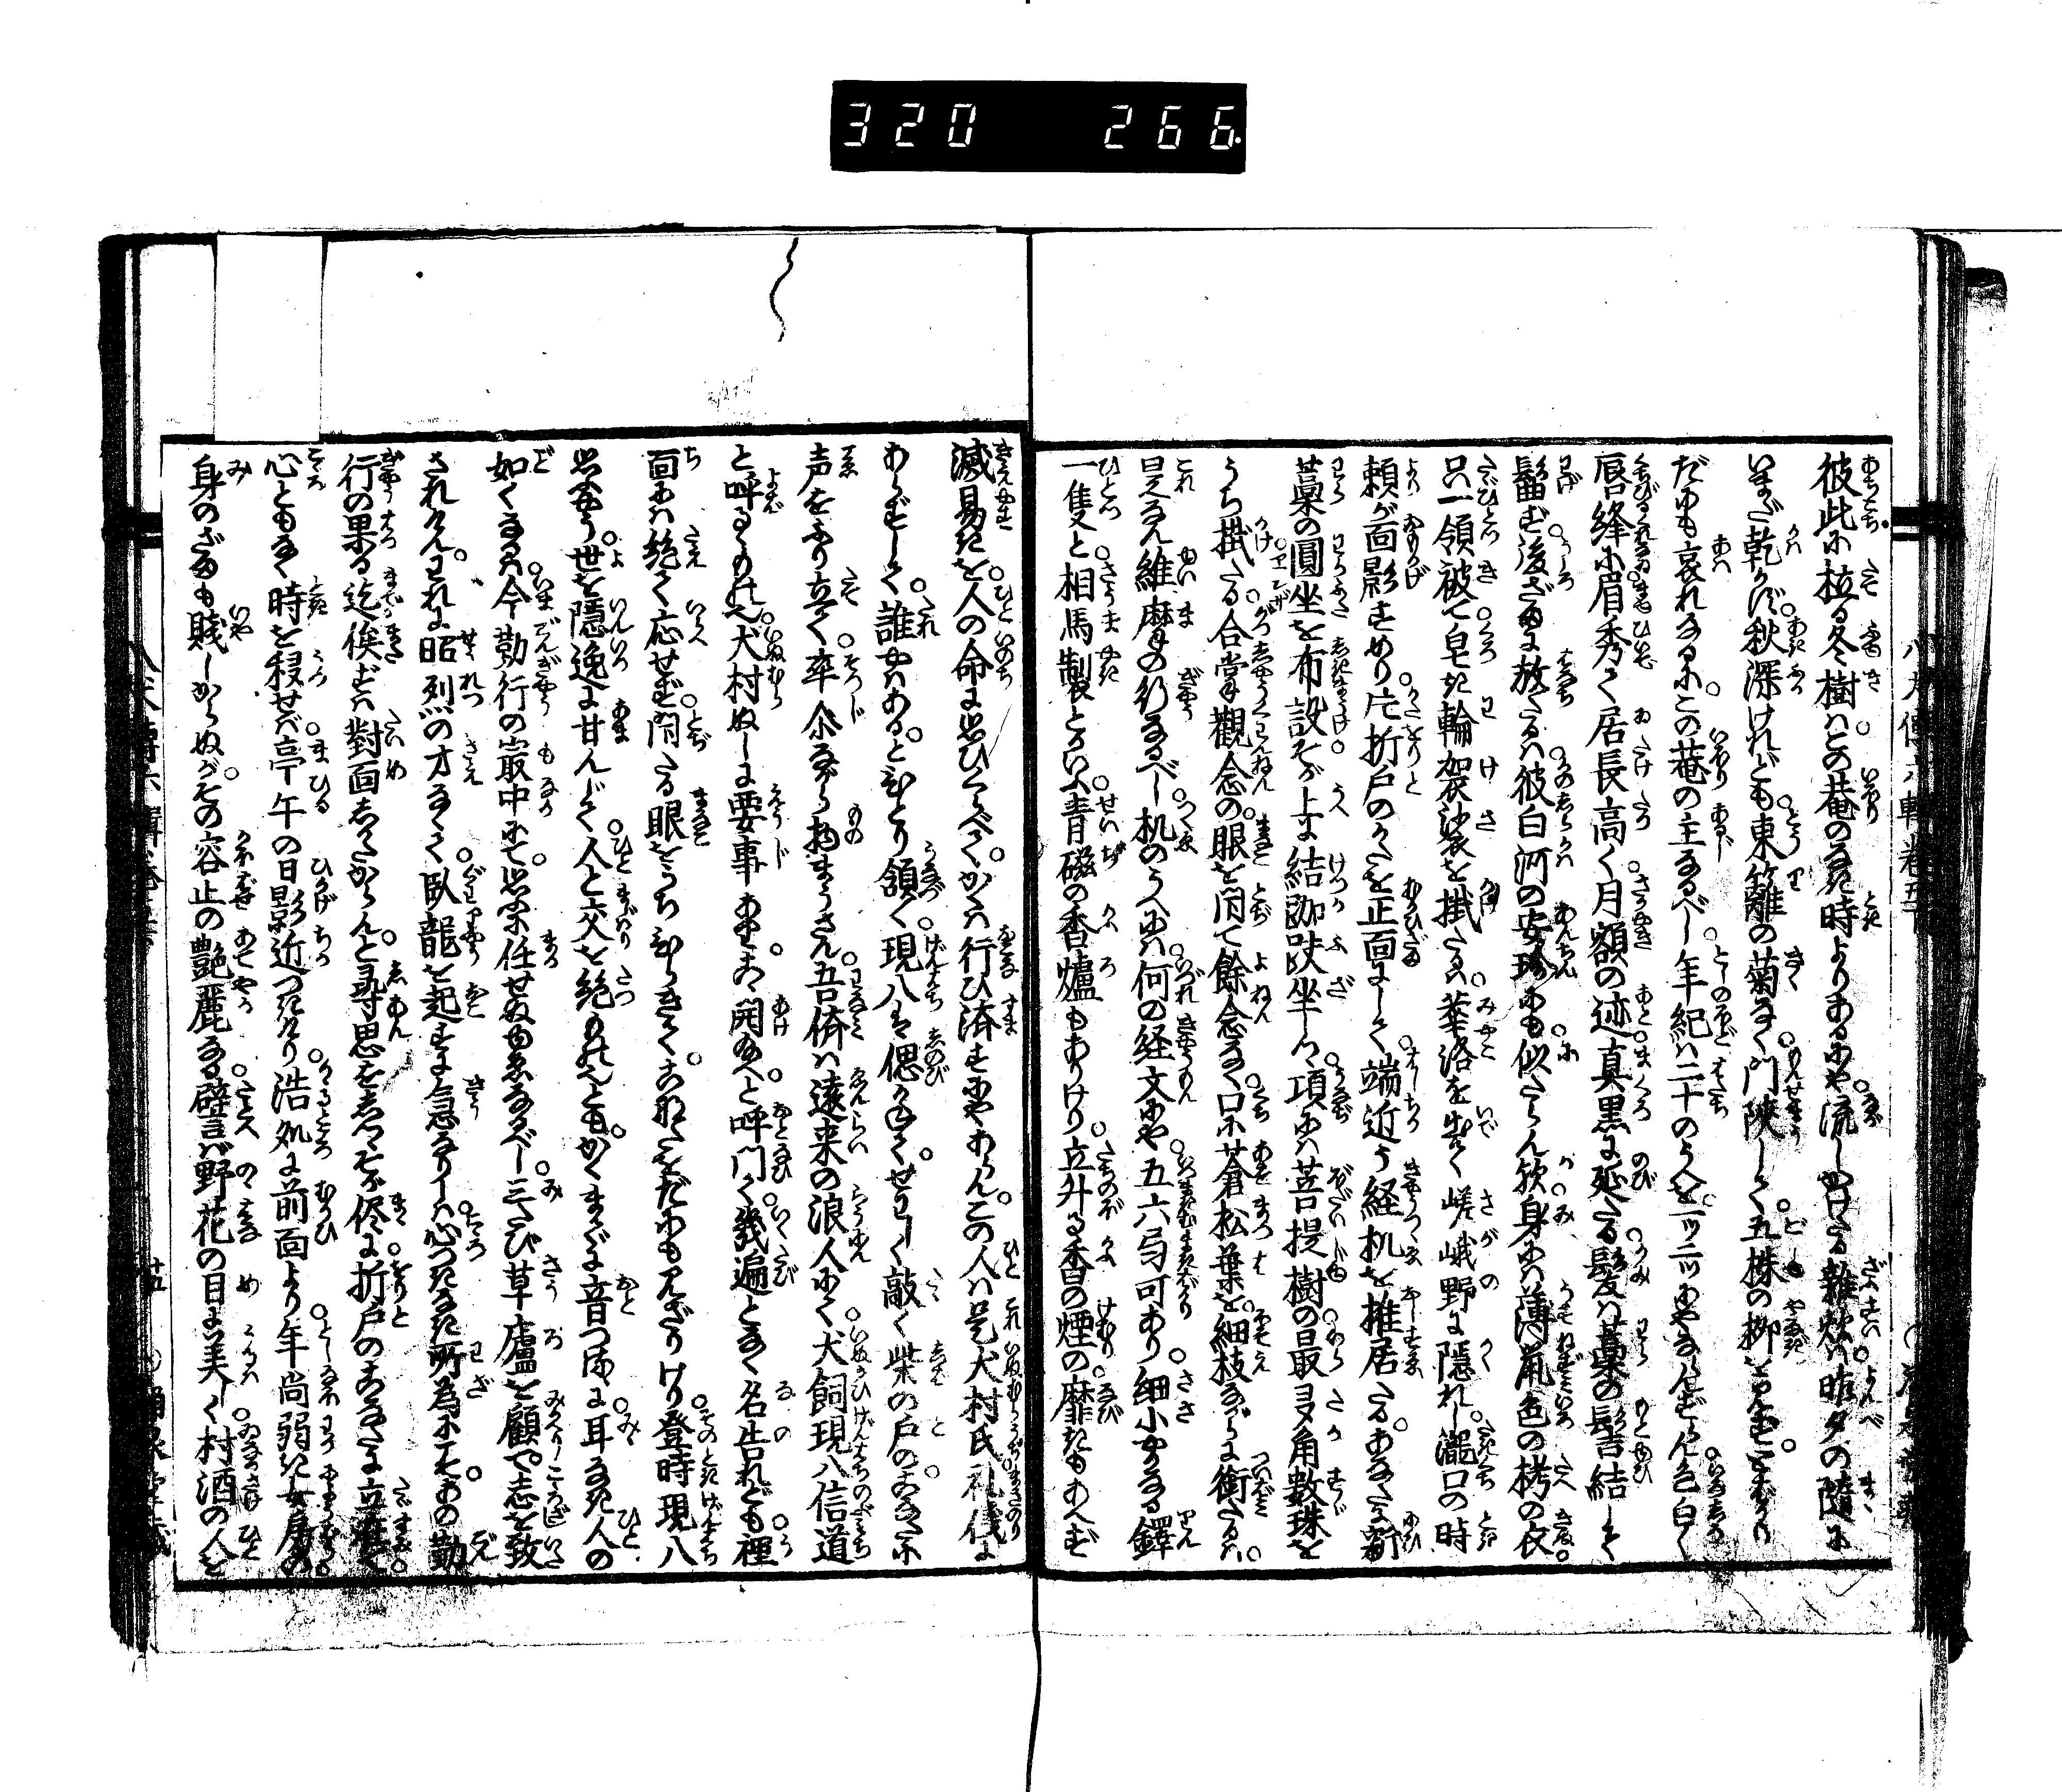 320 266
彼此に柆る冬樹はこの菴のなき時よりあるにや。流しかけたる雑炊は昨夕の随に
いまだ乾かず。秋深けれども東籬の菊なく。門陜しく。五株の柳をうゑず。こればかり
だにも哀れなるに。この菴の主なるべし。年紀は二十のうへを。一ッ二ッにやなりぬらん。色白く
唇絳に。眉秀て居長高く。月額の迹真黒に延たる。髪は藁の髻結して
髷ず。後ざまに放たるは。彼白河の安珍にも。似たらん歟。身には薄鼠色の栲の衣。
只一領被て。皂き輪袈裟を掛たるは。華洛を出て嵯峨野に隠れし。瀧口の時
頼が面影すめり。片折戸のかたを正面にして。端近う経机を推居たる。あなたに新
藁の圓坐を布設。そが上に結跏趺坐しつ。項には菩提樹の最多角数珠を
うち掛たる。合掌観念の。眼を閉て餘念なく。口に蒼松葉を。細枝ながらに銜たるは。
是なん維摩の行なるべし。机のうへには。何の経文にや。五六弓可あり。細小やかなる鐸
一隻と。相馬製とかいふ。青磁の香爐もありけり。立升る香の煙の。靡きもあへず
滅易きを。人の命に思ひくらべて。かくは行ひ済すにやあらん。この人は是犬村氏。礼儀に
あらずして。誰かはある。とひとり頷く。現八は偲びかねて。せわしく敲く柴の戸の。こなたに
声をふり立て。卒尓ながら物まうさん。吾儕は遠来の浪人にて。犬飼現八信道
と呼るゝもの也。犬村ぬしに要事あり。こゝ開給へと呼門て。幾遍となく名告れども。裡
面には絶て応せず。閉たる眼をうちひらきて。こなたをだにも見ざりけり。登時現八
思ふやう。世を隠逸に甘んじて。人と交を絶ものといへども。かくまでに音つるゝに。耳なき人の
如くなるは。今勤行の最中にて。心に任せぬゆゑなるべし。三たび草廬を顧て。志を致
されけん。われに昭烈の才なくて。臥龍を起すに急なりしは。心つたなき所為にこそ。その勤
行の果る迄俟ずは。對面しかたからん。と尋思をしつゝ。そが侭に。折戸のこなたに立在て。
心ともなく時を移せば。亭午の日影近つきけり。浩処に前面より。年尚弱き女房の。
身のざまも賤しからぬが。その容止の艶麗なる。譬ば野花の目に美しく。村酒の人を